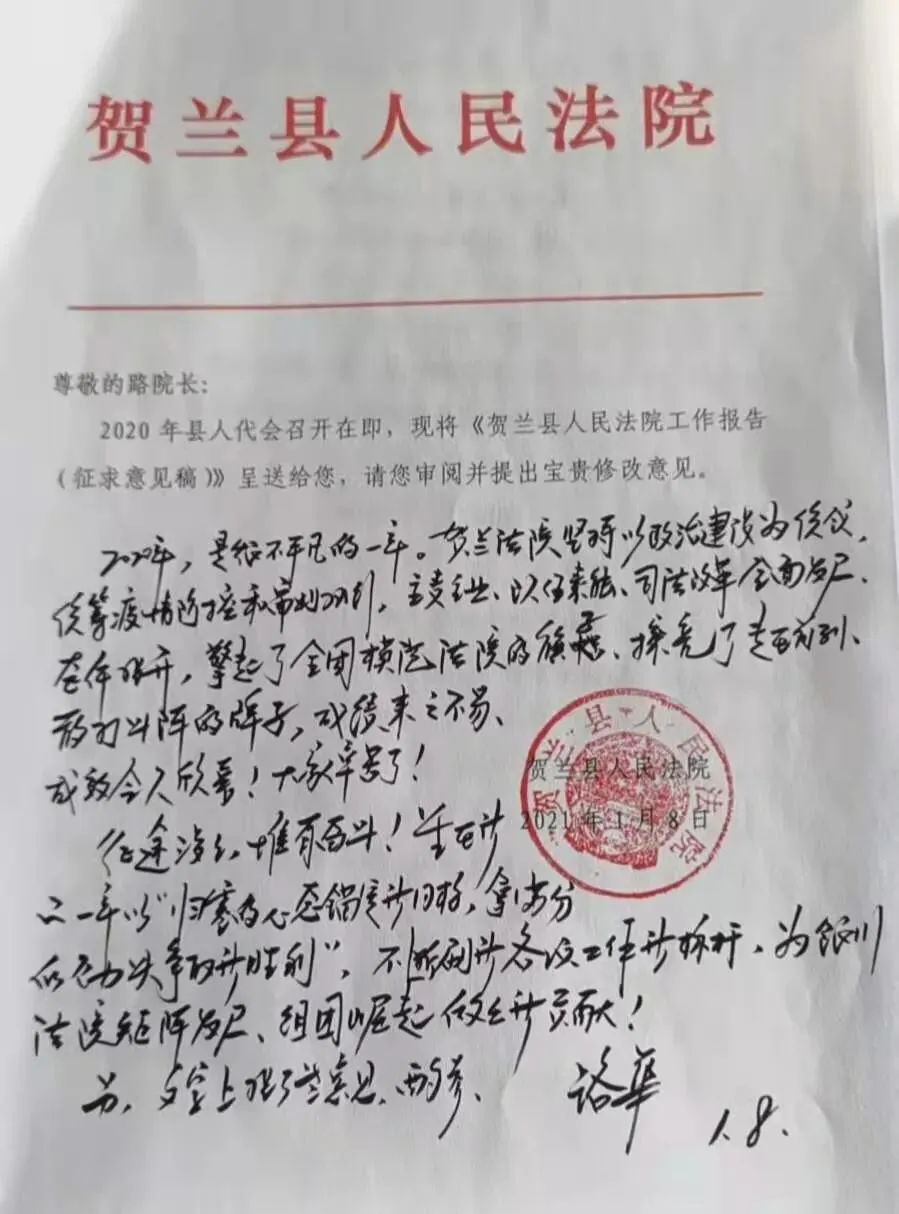 贺兰县人民法院
尊敬的路院长：
2020年县人代会召开在即，现将《贺兰县人民法院工作报告
（征求意见稿）》呈送给您，请您审阅并提出宝贵修改意见。
2020年，是很不平凡的一年。贺兰法院坚持以政治建设为统领，
统筹疫情防控和审判执行，主责主业、司法改革全面发展、
整体推开，擎起了全国模范法院的旗帜、擦亮了走在前列、
敢打斗阵的牌子，成绩来之不易、
成效令人欣喜！大家辛苦了！
贺兰县人民法院
2021年1月8日
贺兰县人民法院
征途漫漫，惟有奋斗！
新一年以"归零的心态锚定新目标，拿
争取新胜利"，不断创新各项工作新标杆，为银川
法院矩阵发展、组团崛起做出新贡献！
另，文字上提了些意见，两参、
路华
1.8.